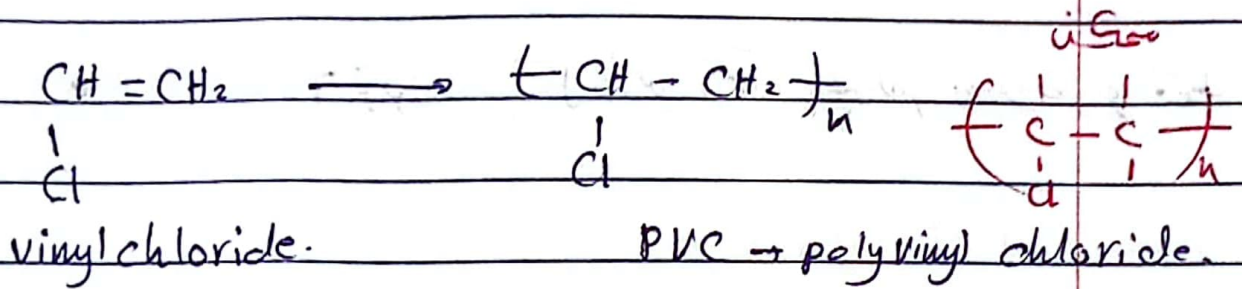 CH = CH₂ ⟶ ( CH - CH₂ )n
Cl Cl
( C - C )n
Cl
vinyl chloride. PVC → polyvinyl chloride.